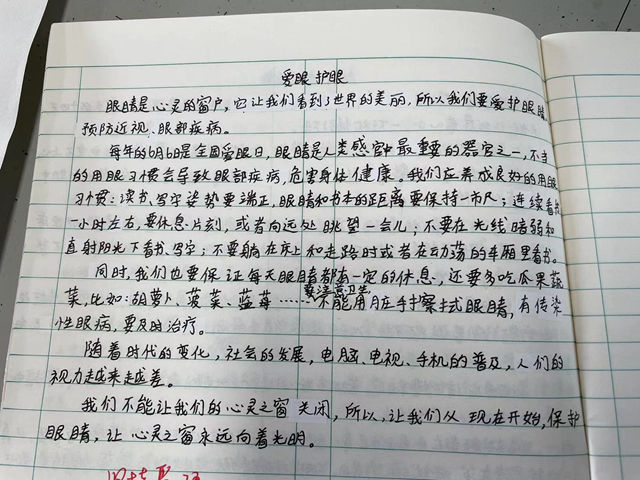 爱眼 护眼
眼睛是心灵的窗户,它让我们看到了世界的美丽,所以我们要爱护眼睛
预防近视、眼部疾病。
每年的6月6日是全国爱眼日,眼睛是人类感官中最重要的器官之一,不当
的用眼习惯会导致眼部疾病,危害身体健康。我们应养成良好的用眼
习惯:读书、写字姿势要端正,眼睛和书本的距离要保持一市尺;连续看书
一小时左右,要休息片刻,或者向远处眺望一会儿;不要在光线暗弱和
直射阳光下看书、写字;不要躺在床上和走路时或者在动荡的车厢里看书。
同时,我们也要保证每天眼睛都有一定的休息,还要多吃瓜果蔬
菜,比如:胡萝卜、菠菜、蓝莓……不能用脏手揉拭眼睛,有传染
性眼病,要及时治疗。
随着时代的变化,社会的发展,电脑、电视、手机的普及,人们的
视力越来越差。
我们不能让我们的心灵之窗关闭,所以,让我们从现在开始,保护
眼睛,让心灵之窗永远向着光明。